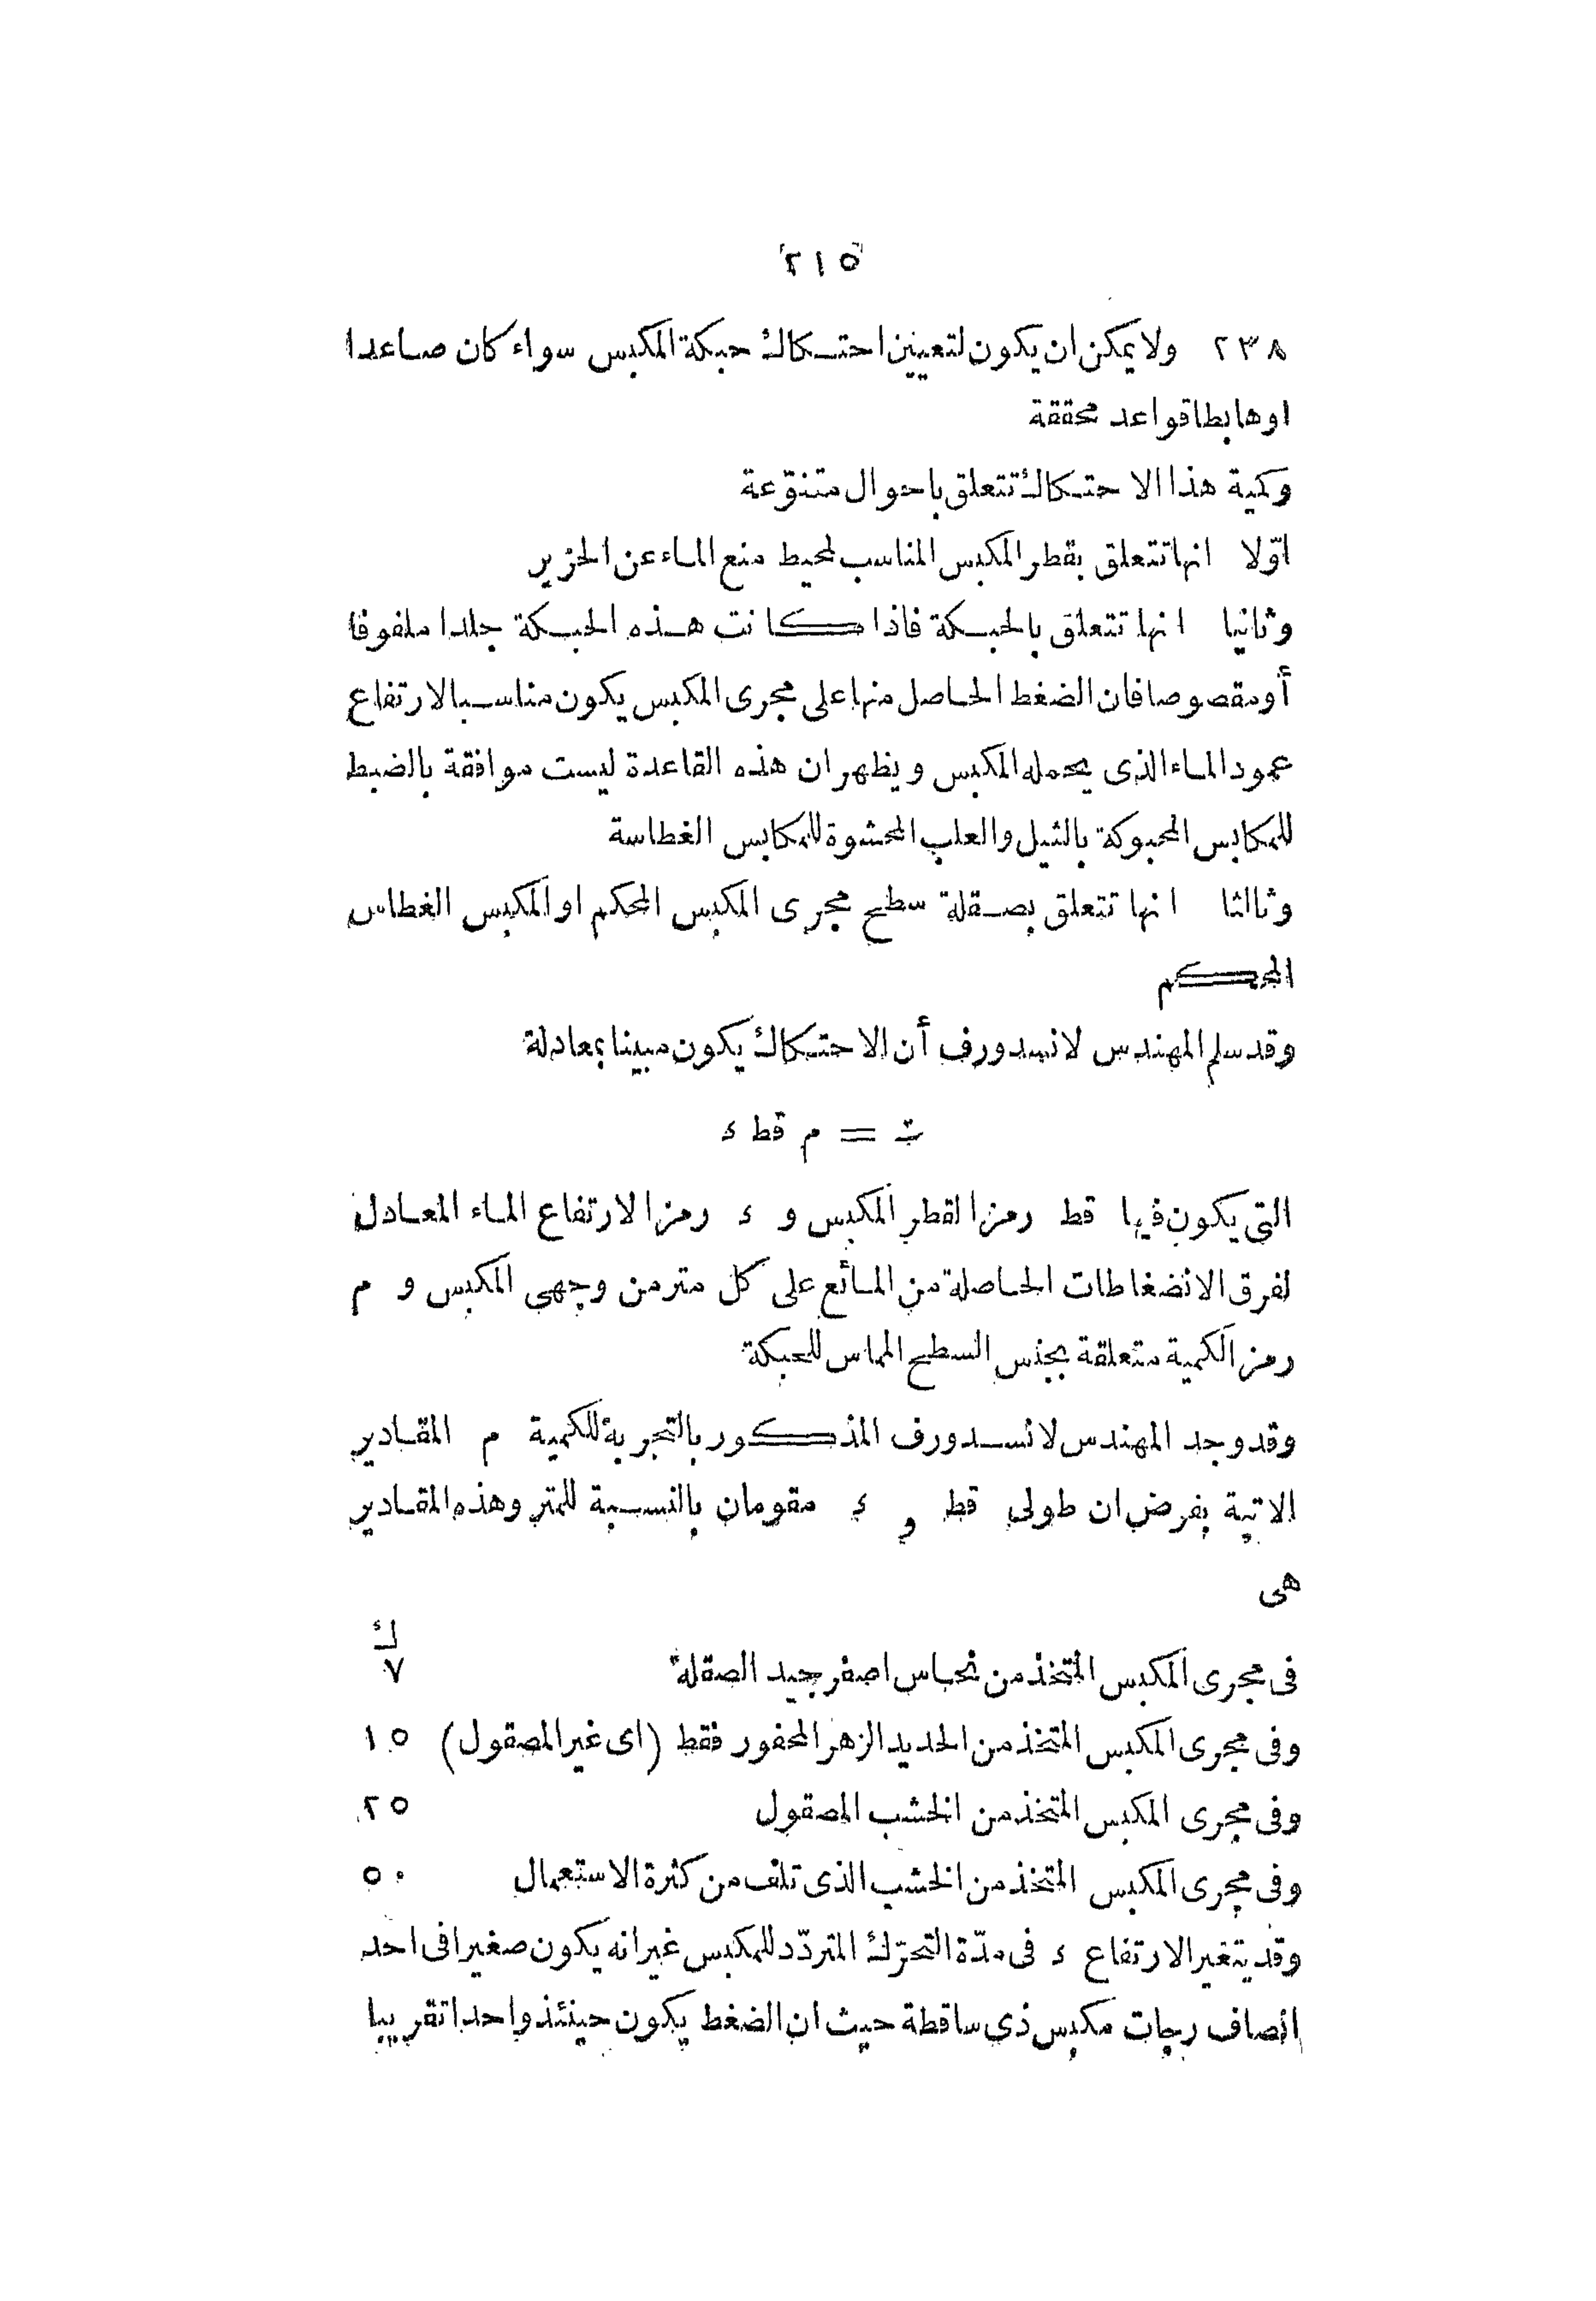 ٢١٥
٢٣٨ ولا يمكن ان يكون لتعيين احتكاك حبكة المكبس سواء كان صاعدا
اوهابطا قواعد محققة
وكمية هذا الاحتكاك تتعلق باحوال متنوّعة
اوّلا انها تتعلق بقطر المكبس المناسب لمحيط منع الماء عن الخزير
وثانيا انها تتعلق بالحبكة فاذا كانت هذه الحبكة جلدا ملفوفا
أومقصوصا فان الضغط الحاصل منها على مجرى المكبس يكون مناسبا لارتفاع
عمود الماء الذى يحمله المكبس ويظهر ان هذه القاعدة ليست موافقة بالضبط
للمكابس المحبوكة بالثيل والعلب المحشوة للمكابس الغطاسة
وثالثا انها تتعلق بصقلة سطح مجرى المكبس المحكم او المكبس الغطاس
المحكم
وقد سلم المهندس لانسدورف أن الاحتكاك يكون مبينا بمعادلة
ت = م قط ء
التى يكون فيها قط رمزا لقطر المكبس و ء رمزا لارتفاع الماء المعادل
لفرق الانضغاطات الحاصلة من المائع على كل متر من وجهى المكبس و م
رمز الكمية متعلقة بجنس السطح المماس للحبكة
وقد وجد المهندس لانسدورف المذكور بالتجربة للكمية م المقادير
الاتية بفرض ان طولى قط و ء مقومان بالنسبة للمتر وهذه المقادير
هى
ك
فى مجرى المكبس المتخذ من نحاس اصفر جيد الصقلة ٧
وفى مجرى المكبس المتخذ من الحديد الزهر المحفور فقط (اى غير المصقول) ١٥
وفى مجرى المكبس المتخذ من الخشب المصقول ٢٥
وفى مجرى المكبس المتخذ من الخشب الذى تلف من كثرة الاستعمال ٥٠
وقد يتغير الارتفاع ء فى مدّة التحرّك المتردّد للمكبس غير انه يكون صغيرا فى احد
انصاف رجات مكبس ذى ساقطة حيث ان الضغط يكون حينئذ واحدا تقريبا